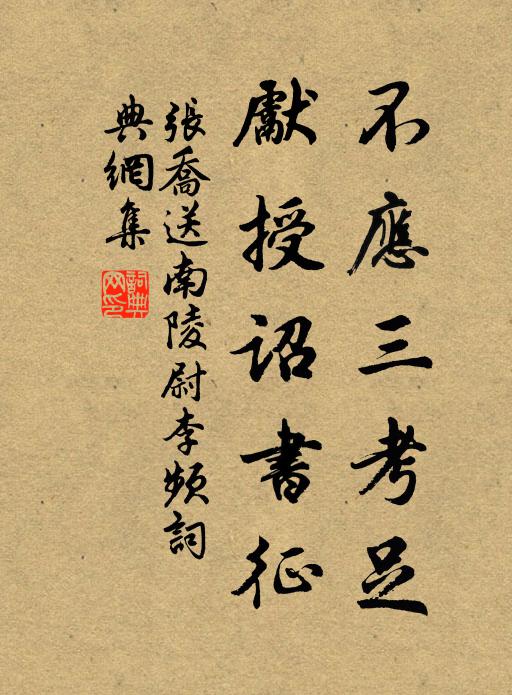 不應三考足
獻授詔書征
張喬送南陵尉李頻詞
典網集
詞典網印